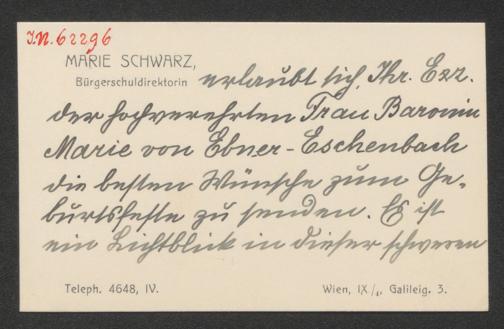 I.N. 62296
MARIE SCHWARZ,
Bürgerschuldirektorin erlaubt sich, Ihr. Exz.
der hochverehrten Frau Baronin
Marie von Ebner-Eschenbach
die besten Wünsche zum Ge-
burtsfeste zu senden. Es ist
ein Lichtblick in dieser schweren
Teleph. 4648, IV. Wien, IX/1, Galileig. 3.